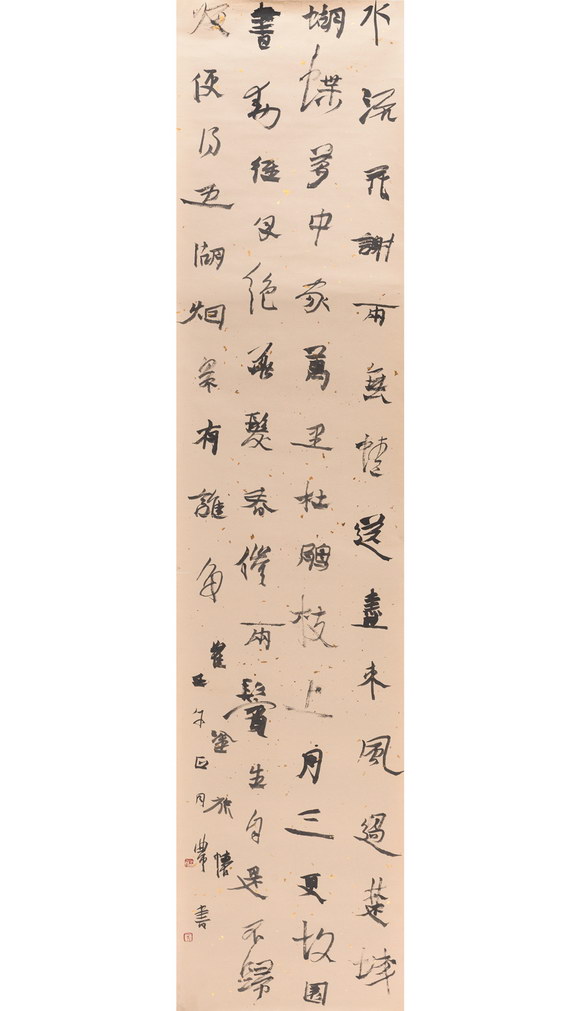 水流花謝兩無情送盡東風過楚城
蝴蝶夢中家萬里杜鵑枝上月三更故園
書動經年絕華髮春催兩鬢生自是不歸
歸便得五湖烟景有誰爭
崔塗旅懷
午正月 書